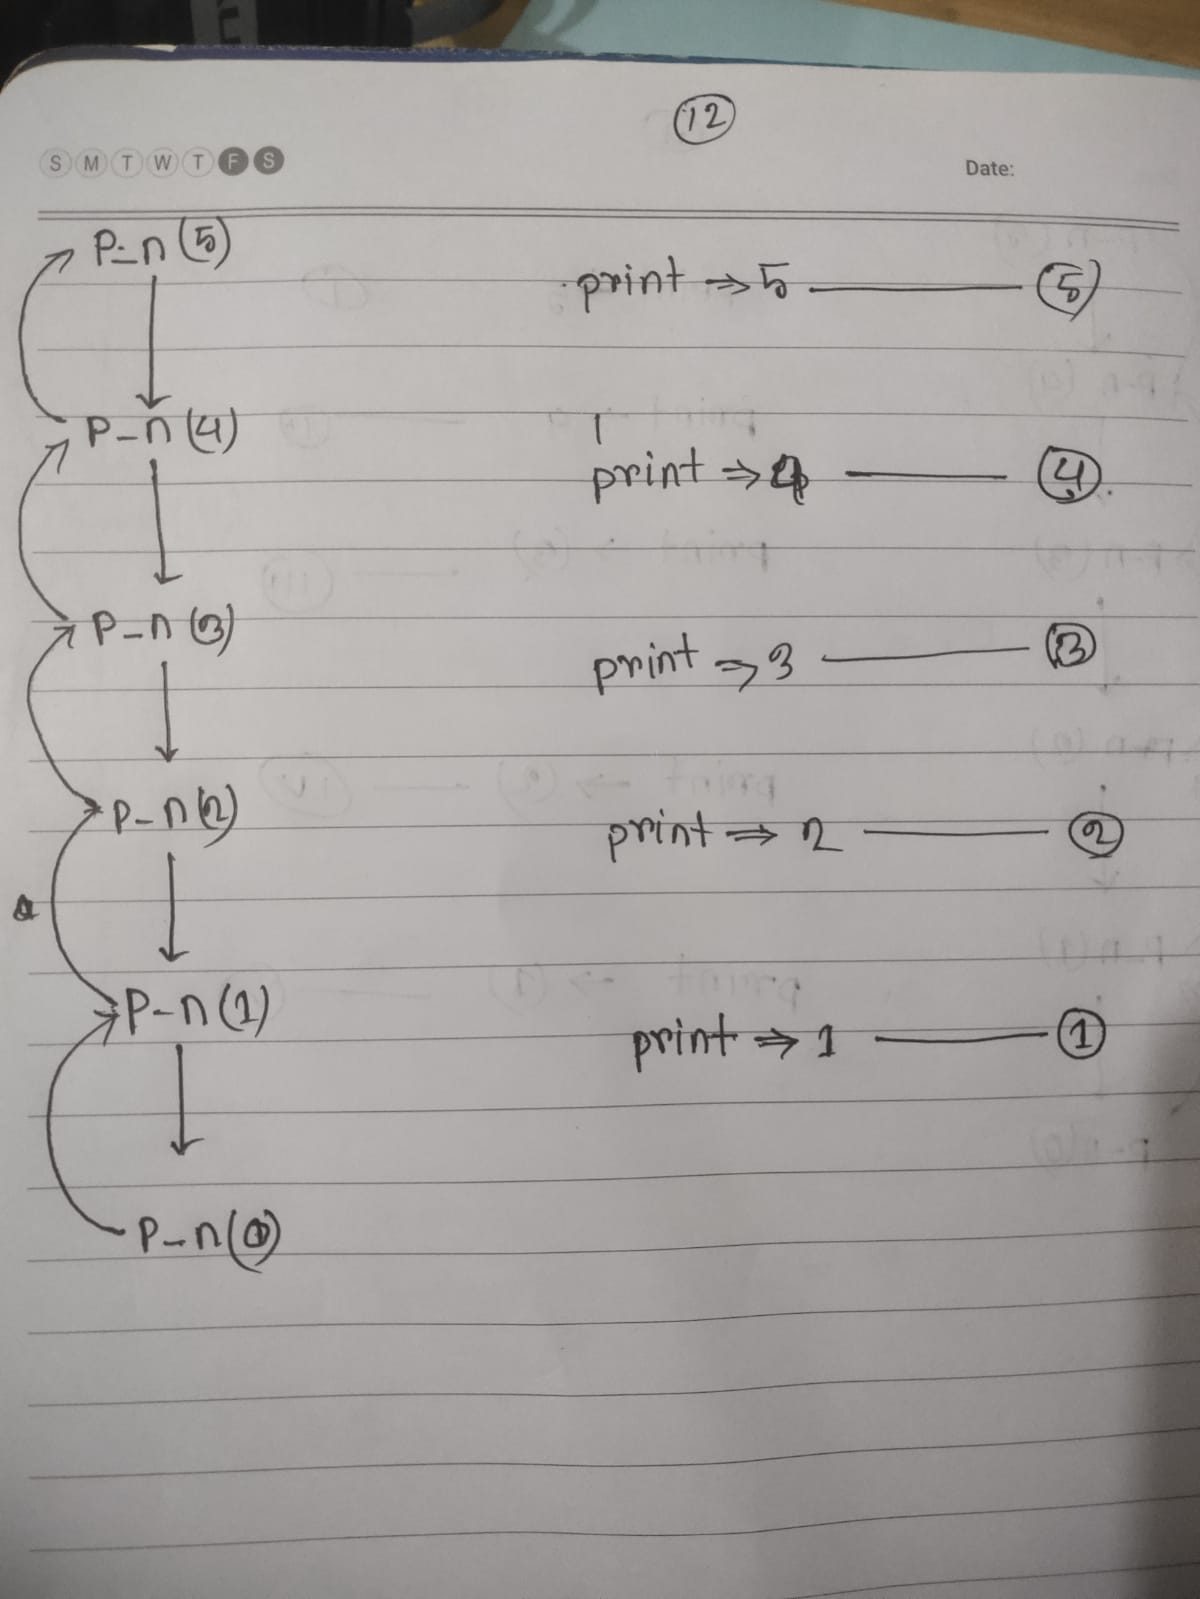 12
S M T W T F S
Date:
P_n(5)
print ⇒ 5 — 5
P_n(4)
print ⇒ 4 — 4
P_n(3)
print ⇒ 3 — 3
P_n(2)
print ⇒ 2 — 2
P_n(1)
print ⇒ 1 — 1
P_n(0)